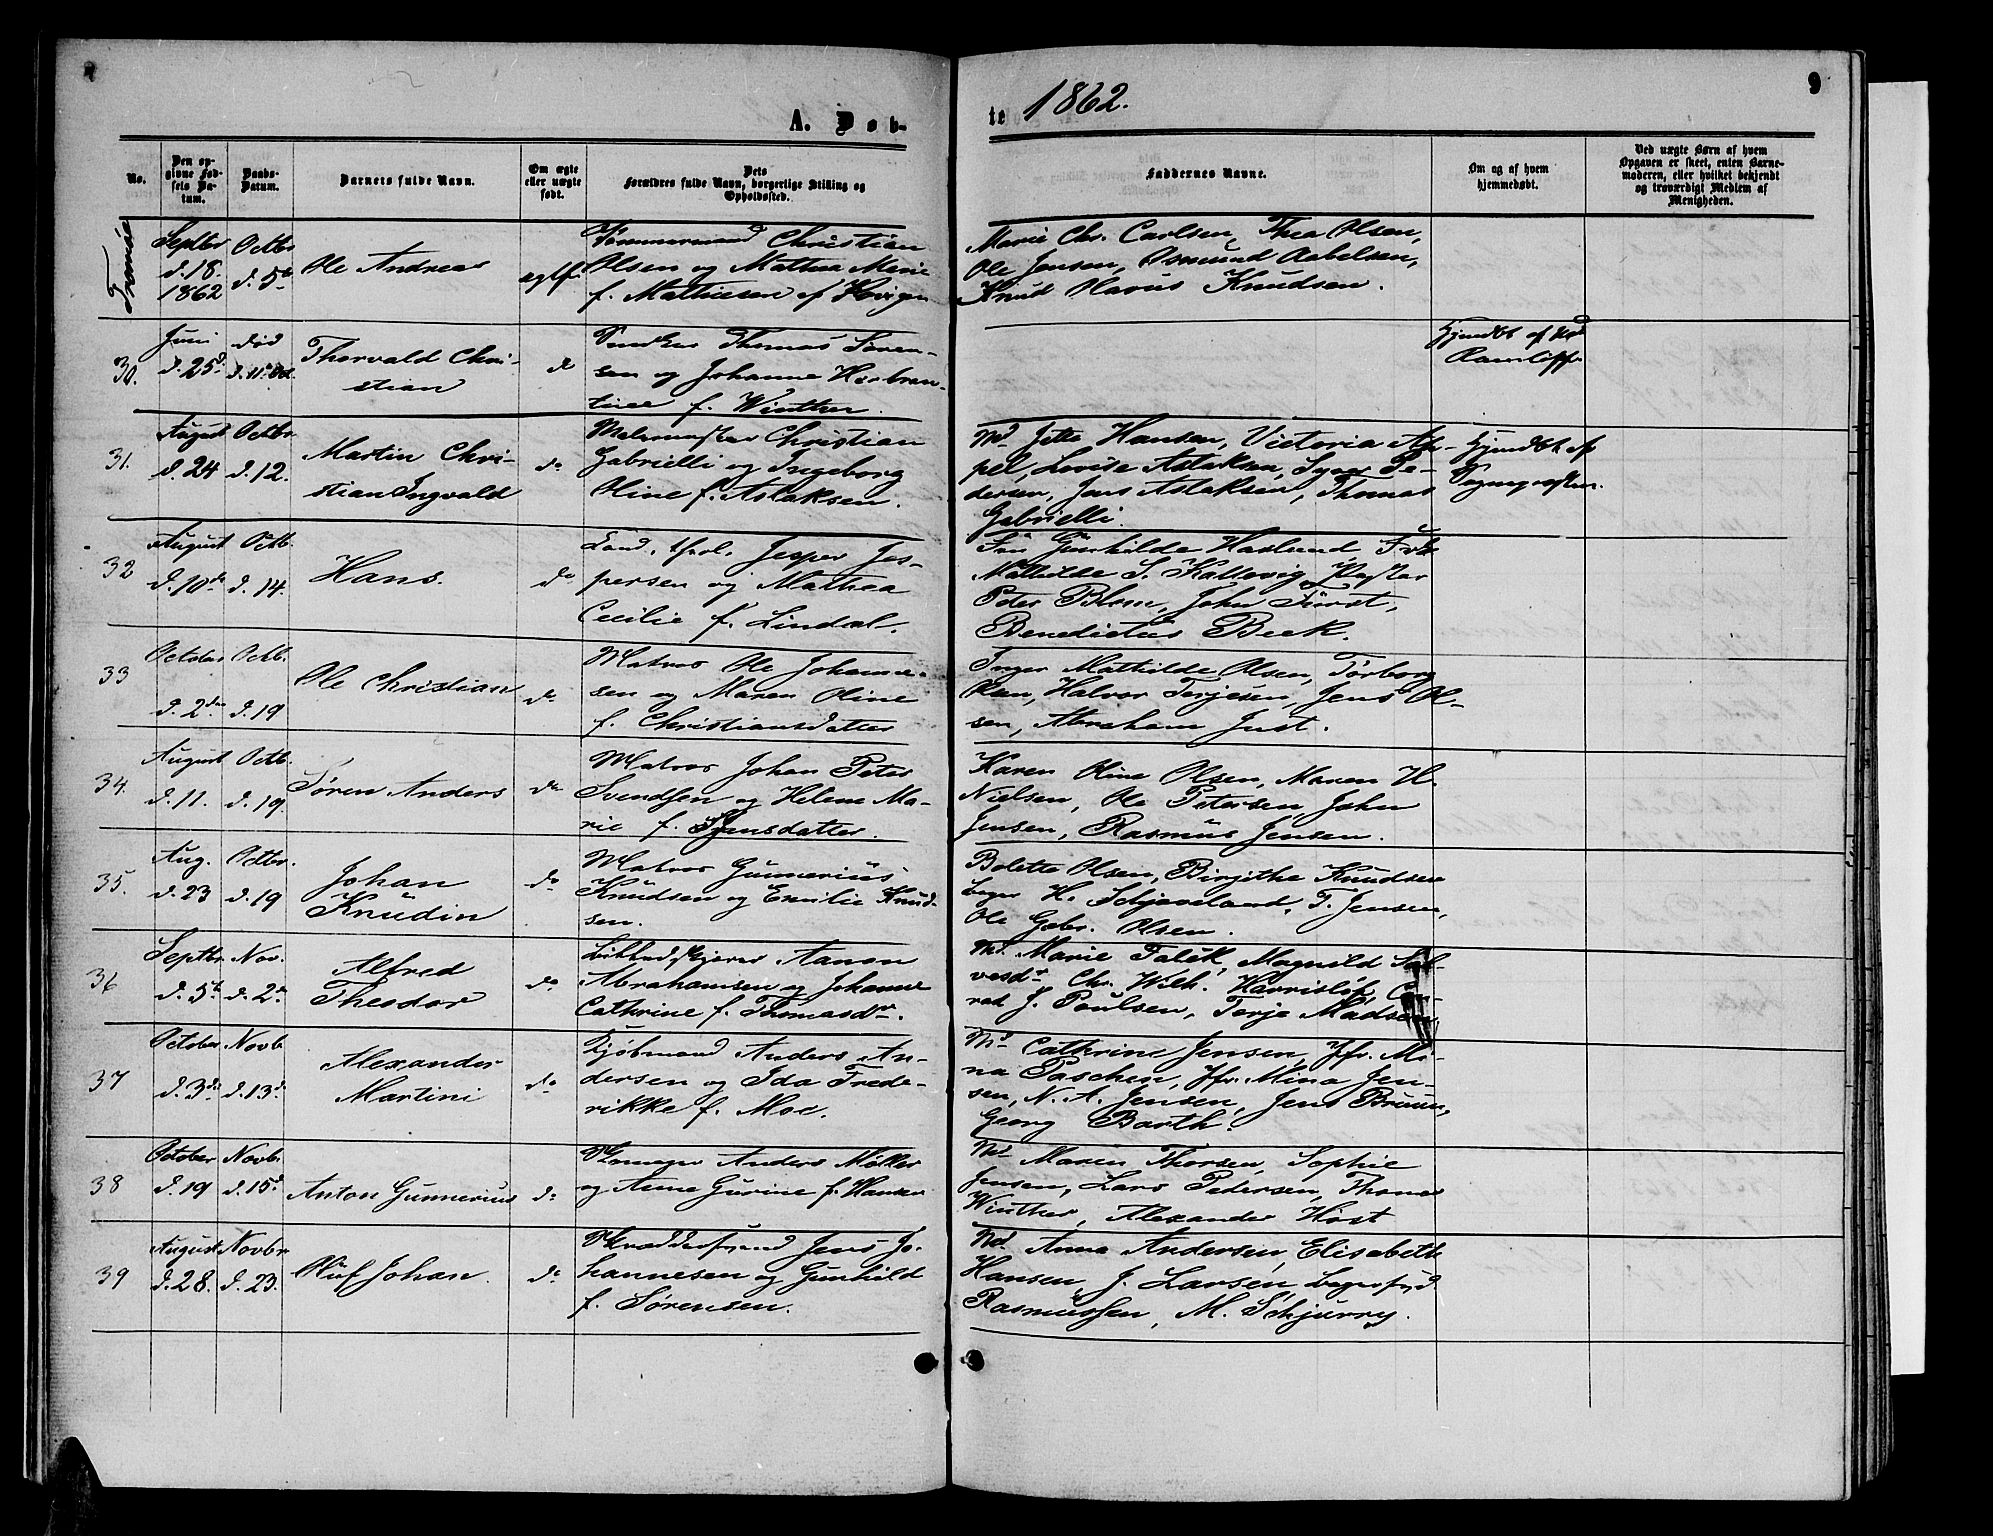 9
A. Døb-
te 1862.
No.
Den op-
givne Fød-
sels Da-
tum.
Daabs-
Datum.
Barnets fulde Navn.
Om ægte
eller uægte
født.
Dets
Forældres fulde Navn, borgerlige Stilling og
Opholdssted.
Faddernes Navne.
Om og af hvem
hjemmedøbt.
Ved uægte Børn af hvem
Opgaven er skeet, enten Barne-
moderen, eller hvilket bekjendt
og troværdigt Medlem af
Menigheden.
Tromøe
Septbr
d. 18.
1862
Octbr
d. 5te
Ole Andreas
ægtef.
Tømmermand Christian
Olsen og Mathea Marie
f. Mathiesen af Hovigen
Marie Chr. Carlsen, Thea Olsen,
Ole Jensen, Osmund Aabelsen,
Knud Olavus Knudsen.
30.
Juni
d. 25d
død
Thorvald Chri-
stian
do
Thomas Søren-
sen og Johanne
f. Winther.
Hjemdbt af
31.
August
d. 24
Octbr.
d. 12.
Martin Chri-
stian Ingvald
do
Christian
Gabrielli og Ingeborg
Oline f. Aslaksen.
Md. Jette Hansen, Victoria Ap-
pel, Lovise Aslaksen, Pe-
dersen, Jens Aslaksen, Thomas
Gabrielli.
Hjemdbt af
32
August
d. 10de
Octb.
d. 14.
Hans.
do
Cand. theol. Jesper Jes-
persen og Mathea
Cecilie f. Lindal.
Gunhilde Haslund,
Mathilde S. Kallevig, Pastor
Peter Blom, John Fürst,
Benedictus Beck.
33
October
d. 2den
Octb.
d. 19
Ole Christian
do
Matros Ole Johanne-
sen og Maren Oline
f. Christiansdatter
Inger Mathilde Olsen, Torborg
Halvor Terjesen, Jens Ol-
sen, Abraham Just.
34.
August
d. 11.
Octb.
d. 19.
Søren Anders
do
Matros Johan Peter
Svendsen og Helene Ma-
rie f. Jensdatter.
Karen Oline Olsen, Maren H.
Nielsen, Ole Petersen, John
Jensen, Rasmus Jensen.
35.
Aug.
d. 23
Octbr.
d. 19
Johan
Knudin
do
Matros Gunnerius
Knudsen og Emilie Knud-
sen.
Bolette Olsen, Birgithe Knudsen
H. Schjeveland, T. Jensen,
Ole Gabr. Olsen.
36
Septbr.
d. 5te
Nov.
d. 2den
Alfred
Theodor
do
Aanon
Abrahamsen og Johanne
Cathrine f. Thomasdr.
Md. Marie Falck, Magnild Sal-
vesdr. Chr. Wilh. Harrisløf, Con-
rad J. Poulsen, Terje Madsen.
37
October
d. 3die
Novb.
d. 13de
Alexander
Martini
do
Kjøbmand Anders An-
dersen og Ida Frede-
rikke f. Moe.
Md. Cathrine Jensen, Jfr. Mi-
na Paschen, Jfr. Mina Jen-
sen, N. A. Jensen, Jens Bruun,
Georg Barth.
38
October
d. 19
Novb.
d. 15d
Anton Gunnerius
do
Anders Møller
og Anne Gurine f. Hansen
Md. Maren Thorsen, Sophie
Jensen, Lars Pedersen, Thomas
Winther, Alexander Høst
39
August
d. 28.
Novbr
d. 23.
Oluf Johan.
do
Skræddersvend Jens Jo-
hannesen og Gunhild
f. Sørensen.
Md. Anna Andersen, Elisabeth
Hansen, J. Larsen,
Rasmussen, M. Schjerry.